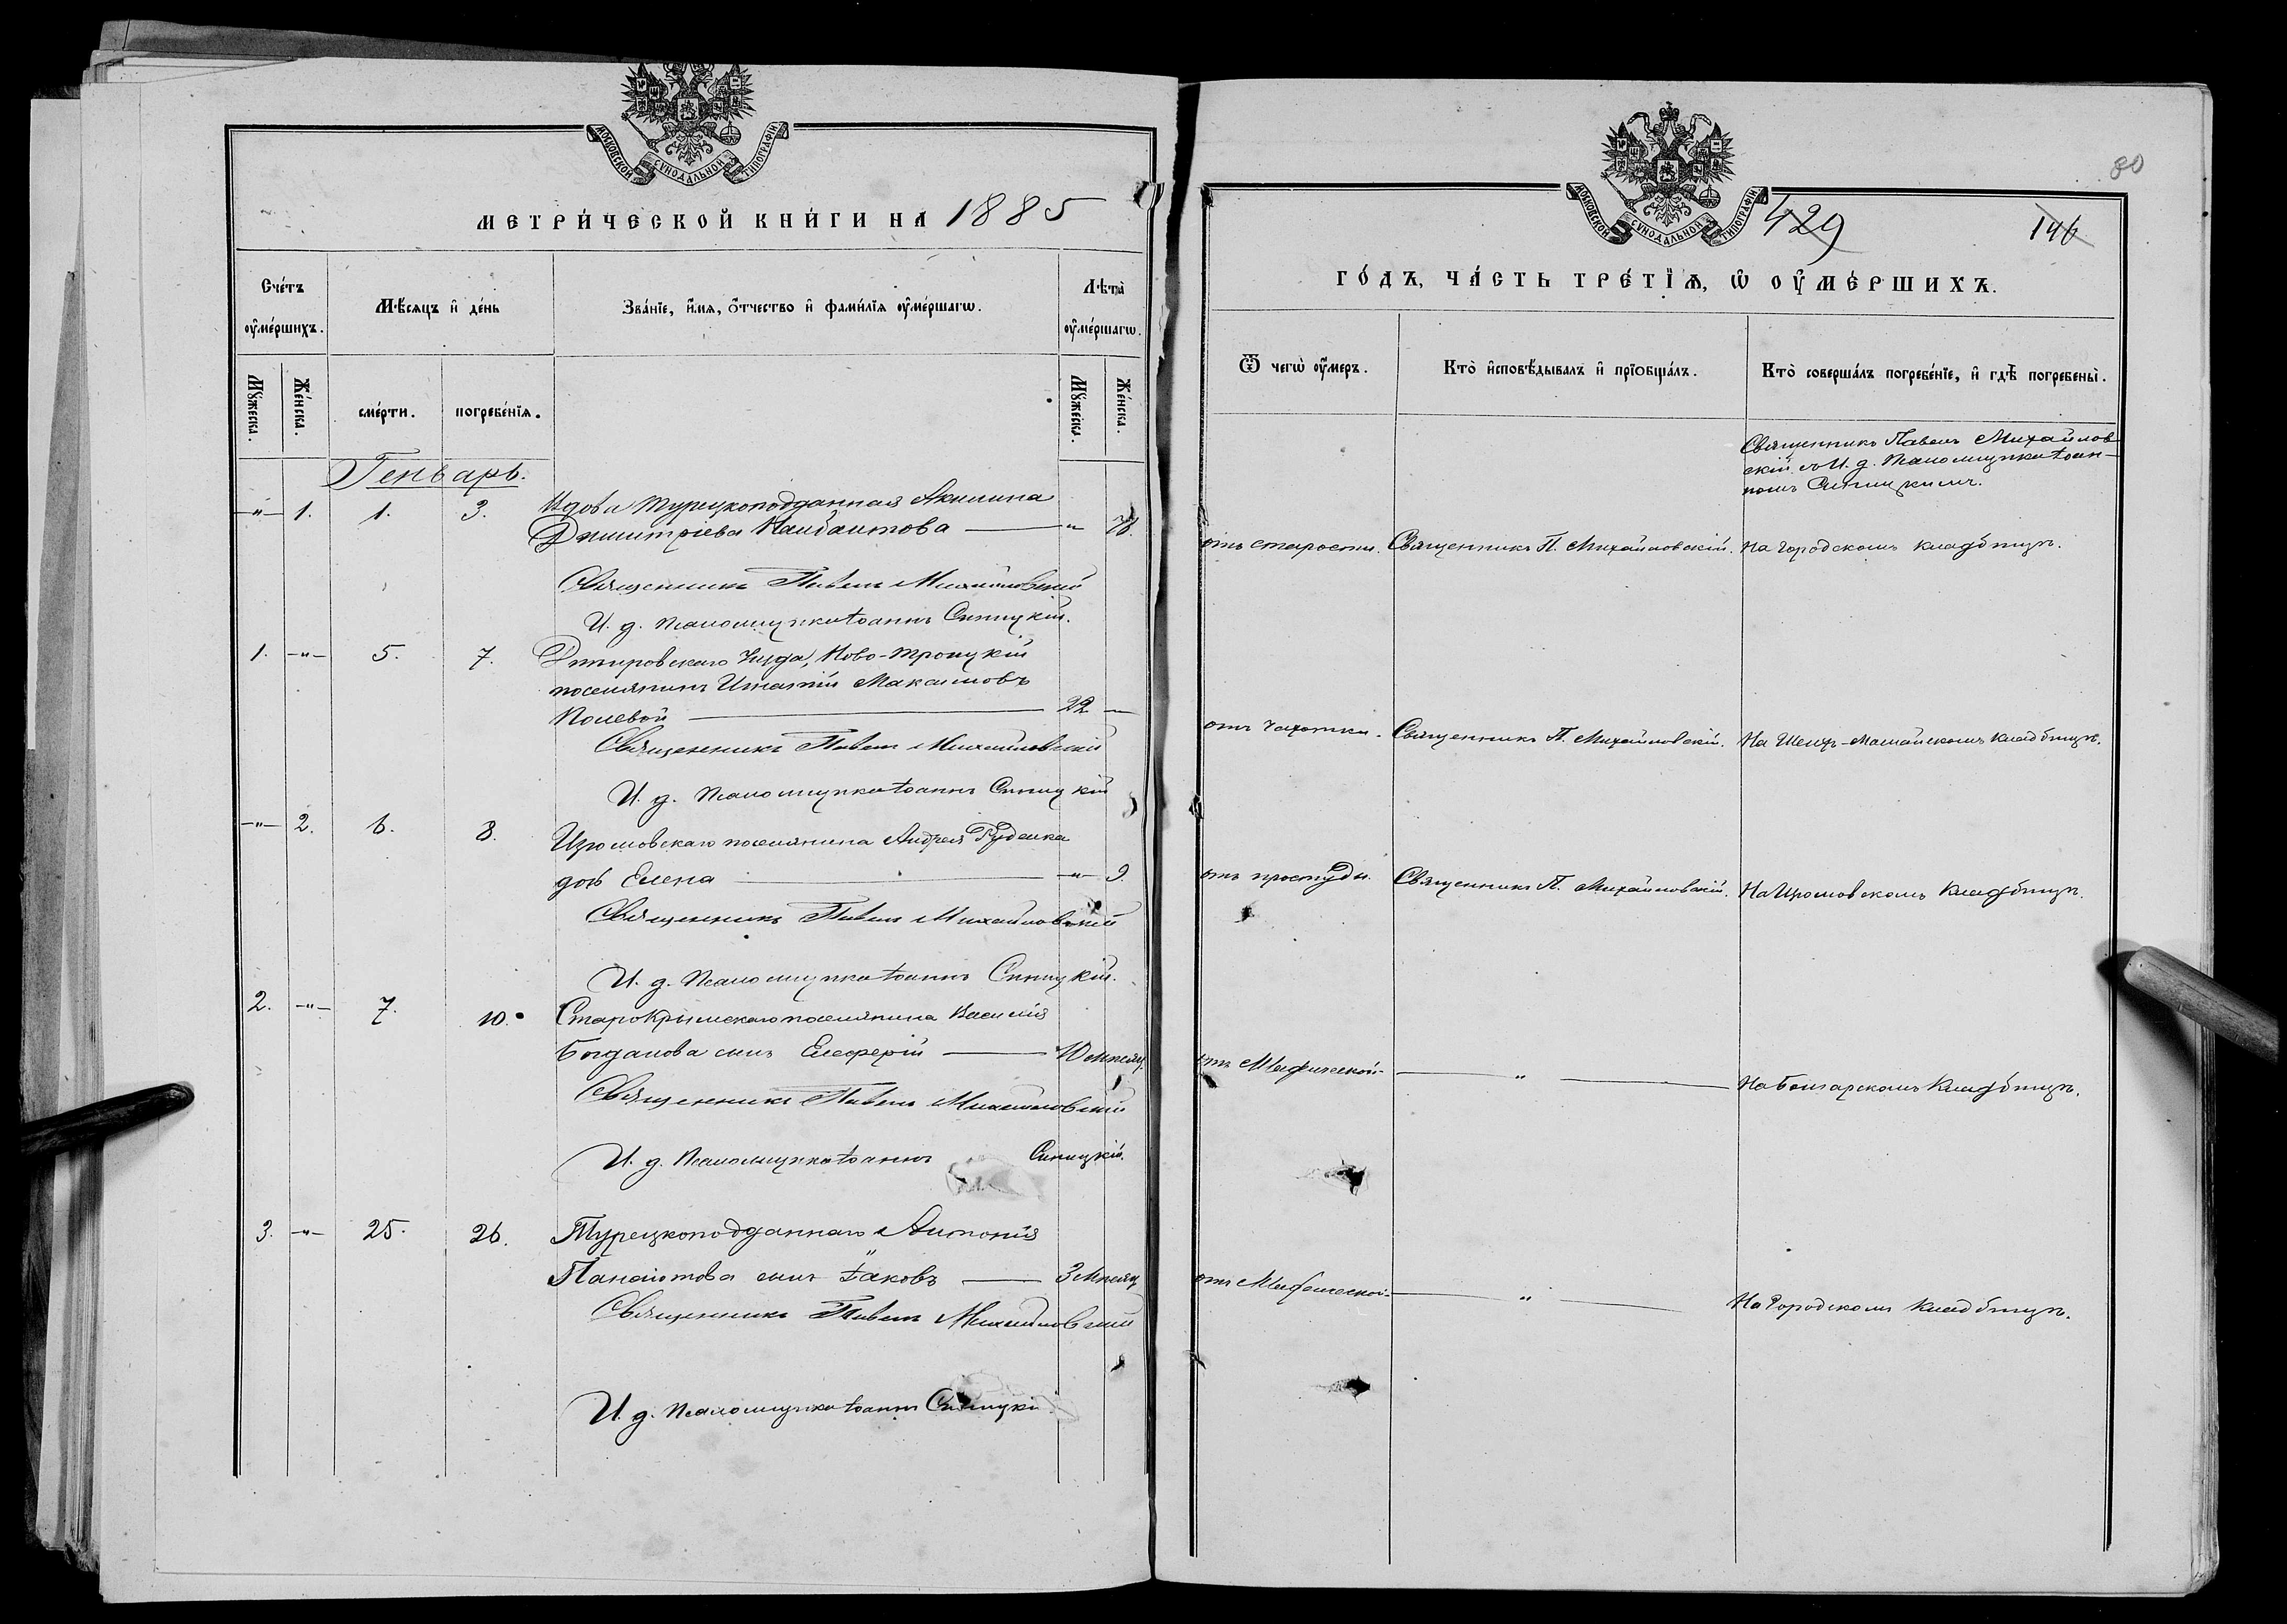 МОСКОВСКОЙ СѴНОДАЛЬНОЙ ТИПОГРАФІИ
МЕТРИ́ЧЕСКОЙ КНИ́ГИ НА 1885
Сче́тъ ᲂу҆ме́ршихъ.
Мѣ́сяцъ и҆ де́нь
Зва́нїе, и҆́мя, ѻ҆́тчество и҆ фами́лїя ᲂу҆ме́ршагѡ.
Лѣ́та ᲂу҆ме́ршагѡ.
Мꙋ́жеска.
Же́нска.
сме́рти.
погребе́нїя.
Мꙋ́жеска.
Же́нска.
Генварь.
-„- 1. 1. 3. Вдова Турецкоподданная Акилина
Дмитріева — „ 78.
Священникъ Павелъ Михайловскій
И. д. Псаломщика Іоаннъ Синицкій.
1. -„- 5. 7. Днѣпровскаго Уѣзда, Ново-Троицкій
поселянинъ Игнатій Максимовъ
Полевой — 22 —
Священникъ Павелъ Михайловскій
И. д. Псаломщика Іоаннъ Синицкій
-„- 2. 6. 8. Изюмовскаго поселянина Андрея Руденка
дочь Елена — „ 9.
Священникъ Павелъ Михайловскій
И. д. Псаломщика Іоаннъ Синицкій.
2. -„- 7. 10. Старокрымскаго поселянина Василія
Богданова сынъ Елеферій — 10 мѣсяц.
Священникъ Павелъ Михайловскій
И. д. Псаломщика Іоаннъ Синицкій.
3. -„- 25. 26. Турецкоподданнаго Антонія
Панаіотова сынъ Іаковъ — 3 мѣсяц
Священникъ Павелъ Михайловскій
И. д. Псаломщика Іоаннъ Синицкій
80
МОСКОВСКОЙ СѴНОДАЛЬНОЙ ТИПОГРАФІИ
429
146
ГО́ДЪ, ЧА́СТЬ ТРЕ́ТЇѦ, Ѡ҆ ОУ҆МЕ́РШИХЪ.
Ѿ чегѡ̀ ᲂу҆́меръ.
Кто̀ и҆сповѣ́дывалъ и҆ прїѻбща́лъ.
Кто̀ соверша́лъ погребе́нїе, и҆ гдѣ̀ погребены̀.
Священникъ Павелъ Михайлов-
скій съ И. д. Псаломщика Іоан-
номъ Синицкимъ.
отъ старости. Священникъ П. Михайловскій. На Городскомъ кладбищѣ.
отъ чахотки. Священникъ П. Михайловскій. На Шейх-Мамайскомъ кладбищѣ.
отъ простуды. Священникъ П. Михайловскій. На Изюмовскомъ кладбищѣ.
отъ Младенческой — „ — На Болгарскомъ кладбищѣ.
отъ Младенческой — „ — На Городскомъ кладбищѣ.